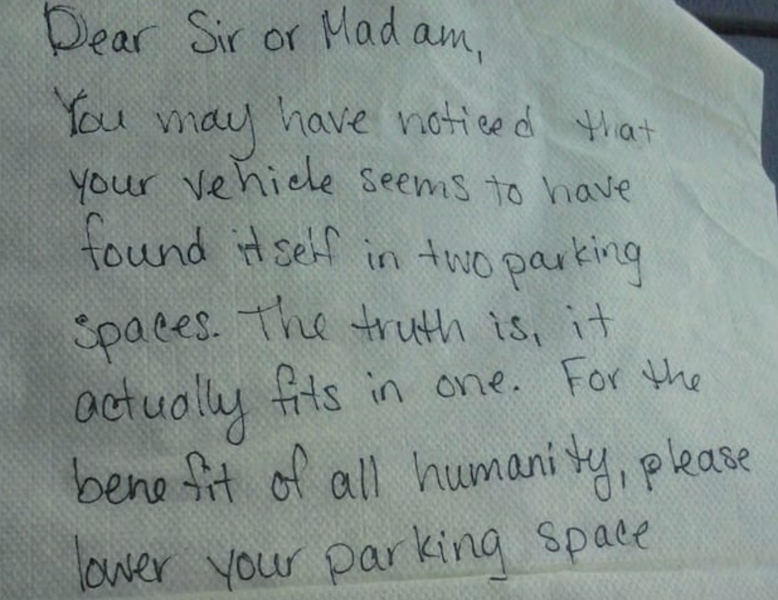 Dear Sir or Madam,
You may have noticed that
your vehicle seems to have
found itself in two parking
spaces. The truth is, it
actually fits in one. For the
benefit of all humanity, please
lower your parking space